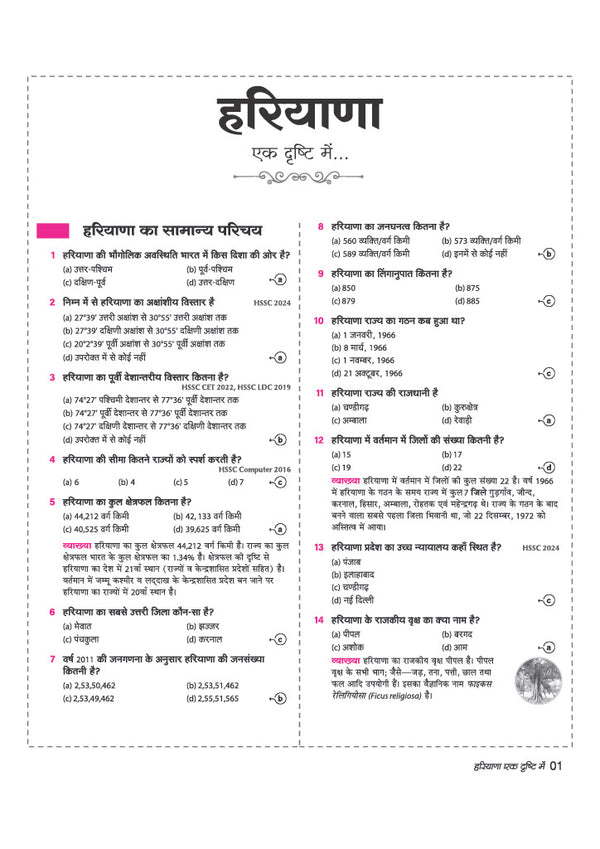 हरियाणा
एक दृष्टि में...
हरियाणा का सामान्य परिचय
1 हरियाणा की भौगोलिक अवस्थिति भारत में किस दिशा की ओर है?
(a) उत्तर-पश्चिम (b) पूर्व-पश्चिम
(c) दक्षिण-पूर्व (d) उत्तर-दक्षिण a
2 निम्न में से हरियाणा का अक्षांशीय विस्तार है HSSC 2024
(a) 27°39' उत्तरी अक्षांश से 30°55' उत्तरी अक्षांश तक
(b) 27°39' दक्षिणी अक्षांश से 30°55' दक्षिणी अक्षांश तक
(c) 20°2°39' पूर्वी अक्षांश से 30°55' पूर्वी अक्षांश तक
(d) उपरोक्त में से कोई नहीं a
3 हरियाणा का पूर्वी देशान्तरीय विस्तार कितना है?
HSSC CET 2022, HSSC LDC 2019
(a) 74°27' पश्चिमी देशान्तर से 77°36' पूर्वी देशान्तर तक
(b) 74°27' पूर्वी देशान्तर से 77°36' पूर्वी देशान्तर तक
(c) 74°27' दक्षिणी देशान्तर से 77°36' दक्षिणी देशान्तर तक
(d) उपरोक्त में से कोई नहीं b
4 हरियाणा की सीमा कितने राज्यों को स्पर्श करती है?
HSSC Computer 2016
(a) 6 (b) 4 (c) 5 (d) 7 c
5 हरियाणा का कुल क्षेत्रफल कितना है?
(a) 44,212 वर्ग किमी (b) 42,133 वर्ग किमी
(c) 40,525 वर्ग किमी (d) 39,625 वर्ग किमी a
व्याख्या हरियाणा का कुल क्षेत्रफल 44,212 वर्ग किमी है। राज्य का कुल
क्षेत्रफल भारत के कुल क्षेत्रफल का 1.34% है। क्षेत्रफल की दृष्टि से
हरियाणा का देश में 21वाँ स्थान (राज्यों व केन्द्रशासित प्रदेशों सहित) है।
वर्तमान में जम्मू कश्मीर व लद्दाख के केन्द्रशासित प्रदेश बन जाने पर
हरियाणा का राज्यों में 20वाँ स्थान है।
6 हरियाणा का सबसे उत्तरी जिला कौन-सा है?
(a) मेवात (b) झज्जर
(c) पंचकुला (d) करनाल c
7 वर्ष 2011 की जनगणना के अनुसार हरियाणा की जनसंख्या
कितनी है?
(a) 2,53,50,462 (b) 2,53,51,462
(c) 2,53,49,462 (d) 2,55,51,565 b
8 हरियाणा का जनघनत्व कितना है?
(a) 560 व्यक्ति/वर्ग किमी (b) 573 व्यक्ति/वर्ग किमी
(c) 589 व्यक्ति/वर्ग किमी (d) इनमें से कोई नहीं b
9 हरियाणा का लिंगानुपात कितना है?
(a) 850 (b) 875
(c) 879 (d) 885 c
10 हरियाणा राज्य का गठन कब हुआ था?
(a) 1 जनवरी, 1966
(b) 8 मार्च, 1966
(c) 1 नवम्बर, 1966
(d) 21 अक्टूबर, 1966 c
11 हरियाणा राज्य की राजधानी है
(a) चण्डीगढ़ (b) कुरुक्षेत्र
(c) अम्बाला (d) रेवाड़ी a
12 हरियाणा में वर्तमान में जिलों की संख्या कितनी है?
(a) 15 (b) 17
(c) 19 (d) 22 d
व्याख्या हरियाणा में वर्तमान में जिलों की कुल संख्या 22 है। वर्ष 1966
में हरियाणा के गठन के समय राज्य में कुल 7 जिले गुड़गाँव, जीन्द,
करनाल, हिसार, अम्बाला, रोहतक एवं महेन्द्रगढ़ थे। राज्य के गठन के बाद
बनने वाला सबसे पहला जिला भिवानी था, जो 22 दिसम्बर, 1972 को
अस्तित्व में आया।
13 हरियाणा प्रदेश का उच्च न्यायालय कहाँ स्थित है? HSSC 2024
(a) पंजाब
(b) इलाहाबाद
(c) चण्डीगढ़
(d) नई दिल्ली c
14 हरियाणा के राजकीय वृक्ष का क्या नाम है?
(a) पीपल (b) बरगद
(c) अशोक (d) आम a
व्याख्या हरियाणा का राजकीय वृक्ष पीपल है। पीपल
वृक्ष के सभी भाग; जैसे—जड़, तना, पत्ती, छाल तथा
फल आदि उपयोगी हैं। इसका वैज्ञानिक नाम फाइकस
रेलिगियोसा (Ficus religiosa) है।
हरियाणा एक दृष्टि में 01